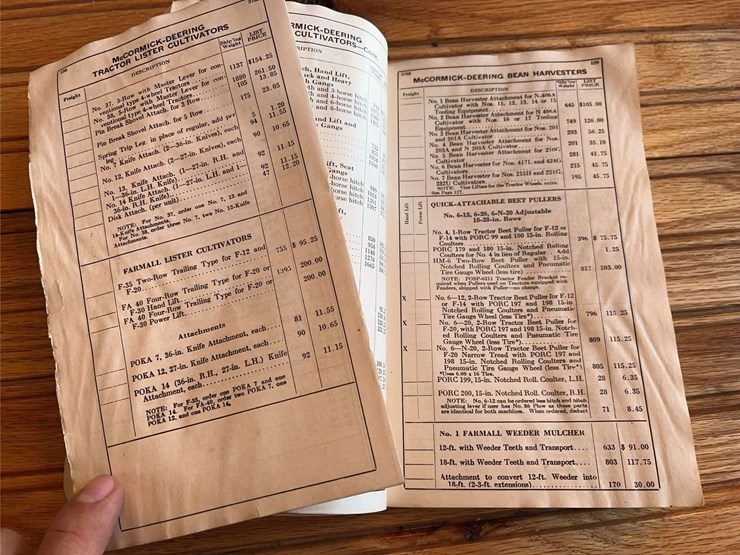 McCORMICK-DEERING
TRACTOR LISTER CULTIVATORS
Freight
DESCRIPTION
Ship'ng Weight
LIST PRICE
No. 37, 3-Row with Master Lever for con-
ventional type 4-wheel Tractors 1137 $154.25
No. 38, 5-Row with Master Lever for con-
ventional type 4-wheel Tractors 1880 261.50
Pin Break Shovel Attach. for 3 Row 105 13.85
Pin Break Shovel Attach. for 5 Row 175 23.05
Spring Trip Leg. in place of regular, add per 5 1.20
No. 7 Knife Attach. (2—36-in. Knives), each 94 11.55
No. 12, Knife Attach. (2—27-in. Knives), each 90 10.65
No. 13, Knife Attach. (1—27-in. R.H. and
36-in. L.H. Knife) 92 11.15
No. 14 Knife Attach. (1—27-in. L.H. and 1—
36-in. R.H. Knife) 92 11.15
Disk Attach. (per unit) 47 12.70
NOTE: For No. 37, order one No. 7, 13 and
14-Knife Attachments.
For No. 38, order three No. 7, two No. 12-Knife
Attachments.
FARMALL LISTER CULTIVATORS
F-35 Two-Row Trailing Type for F-12 and
F-20 755 $ 95.25
FA 40 Four-Row Trailing Type for F-20 or
F-30 Hand Lift 1395 200.00
FA 40 Four-Row Trailing Type for F-20 or
F-30 Power Lift 200.00
Attachments
POKA 7, 36-in. Knife Attachment, each 81 11.55
POKA 12, 27-in. Knife Attachment, each 90 10.65
POKA 14 (36-in. R.H., 27-in. L.H.) Knife
Attachment, each 92 11.15
NOTE: For F-35, order one POKA 7 and one
POKA 14. For FA-40, order two POKA 7, one
POKA 12, and one POKA 14.
RMICK-DEERING
CULTIVATORS—
RIPTION
Hand Lift,
and Heavy
Lift and
Gangs
Seat
Gangs
McCORMICK-DEERING BEAN HARVESTERS
Freight
DESCRIPTION
Ship'ng Weight
LIST PRICE
No. 1 Bean Harvester Attachment for N-406A
Cultivator with Nos. 11, 12, 13, 14 or 15
Tooling Equipment 645 $105.00
No. 2 Bean Harvester Attachment for N 406A
Cultivator with Nos. 16 or 17 Tooling
Equipment 749 126.00
No. 3 Bean Harvester Attachment for Nos. 201
and 201A Cultivator 293 56.25
No. 4 Bean Harvester Attachment for Nos.
203A and N 203A Cultivator 201 35.10
No. 5 Bean Harvester Attachment for
Cultivator 281 41.75
No. 6 Bean Harvester for Nos.
Cultivator 215 45.75
No. 7 Bean Harvester for Nos.
Cultivator 195 45.75
Hand Lift
Power Lift
QUICK-ATTACHABLE BEET PULLERS
No. 6-12, 6-20, 6-N-20 Adjustable
18-28-in. Rows
No. 4, 1-Row Tractor Beet Puller for F-12 or
F-14 with PORC 99 and 100 15-in. Rolling
Coulters 396 $ 75.75
PORC 179 and 180 15-in. Notched Rolling
Coulters for No. 4 in lieu of Regular. Add 1.25
HM-6 Two-Row Beet Puller with 15-in.
Notched Rolling Coulters and Pneumatic
Tire Gauge Wheel (less tire) 817 103.00
NOTE: POSP-6211 Tractor Fender Bracket re-
quired when Pullers used on Tractors equipped with
Fenders, shipped with Puller—no charge.
X No. 6—12, 2-Row Tractor Beet Puller for F-12
or F-14 with PORC 197 and 198 15-in.
Notched Rolling Coulters and Pneumatic
Tire Gauge Wheel (less Tire*) 796 115.25
X No. 6—20, 2-Row Tractor Beet Puller for
F-20, with PORC 197 and 198 15-in. Notch-
ed Rolling Coulters and Pneumatic Tire
Gauge Wheel (less Tire*) 809 115.25
X No. 6—N-20, 2-Row Tractor Beet Puller for
F-20 Narrow Tread with PORC 197 and
198 15-in. Notched Rolling Coulters and
Pneumatic Tire Gauge Wheel (less Tire*) 805 115.25
*Uses 4.00 x 16 Tire.
PORC 199, 15-in. Notched Roll. Coulter, L.H. 28 6.35
PORC 200, 15-in. Notched Roll. Coulter, R.H. 28 6.35
NOTE: No. 6-12 can be ordered less hitch and hitch
adjusting lever if user has No. 86 Plow as these parts
are identical for both machines. When ordered, deduct 71 8.45
No. 1 FARMALL WEEDER MULCHER
12-ft. with Weeder Teeth and Transport 633 $ 91.00
18-ft. with Weeder Teeth and Transport 803 117.75
Attachment to convert 12-ft. Weeder into
18-ft. (2-3-ft. extensions) 170 30.00